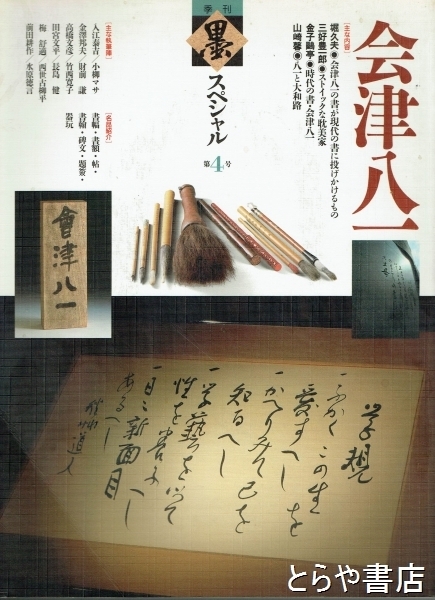 会津八一
[主な内容]
堀久夫●会津八一の書が現代の書に投げかけるもの
三好豊一郎●ストイックな耽美家
金子鷗亭●時代の書・会津八一
山崎馨●八一と大和路
季刊
墨
スペシャル
第4号
[名品紹介]
書幅・書額・帖・
書簡・碑文・題簽・
器玩
[主な執筆陣]
入江泰吉 小柳マサ
金澤邦夫 財前 謙
高橋文彦 竹西寛子
田宮文平 長島 健
梅 舒適 西世古柳平
前田耕作 水原徳言
會津八一
学規
一ふかくこの生を
愛すへし
一かへりみて己を
知るへし
一学藝を以て
性を養ふへし
一日々新面目
あるへし
秋艸道人
とらや書店